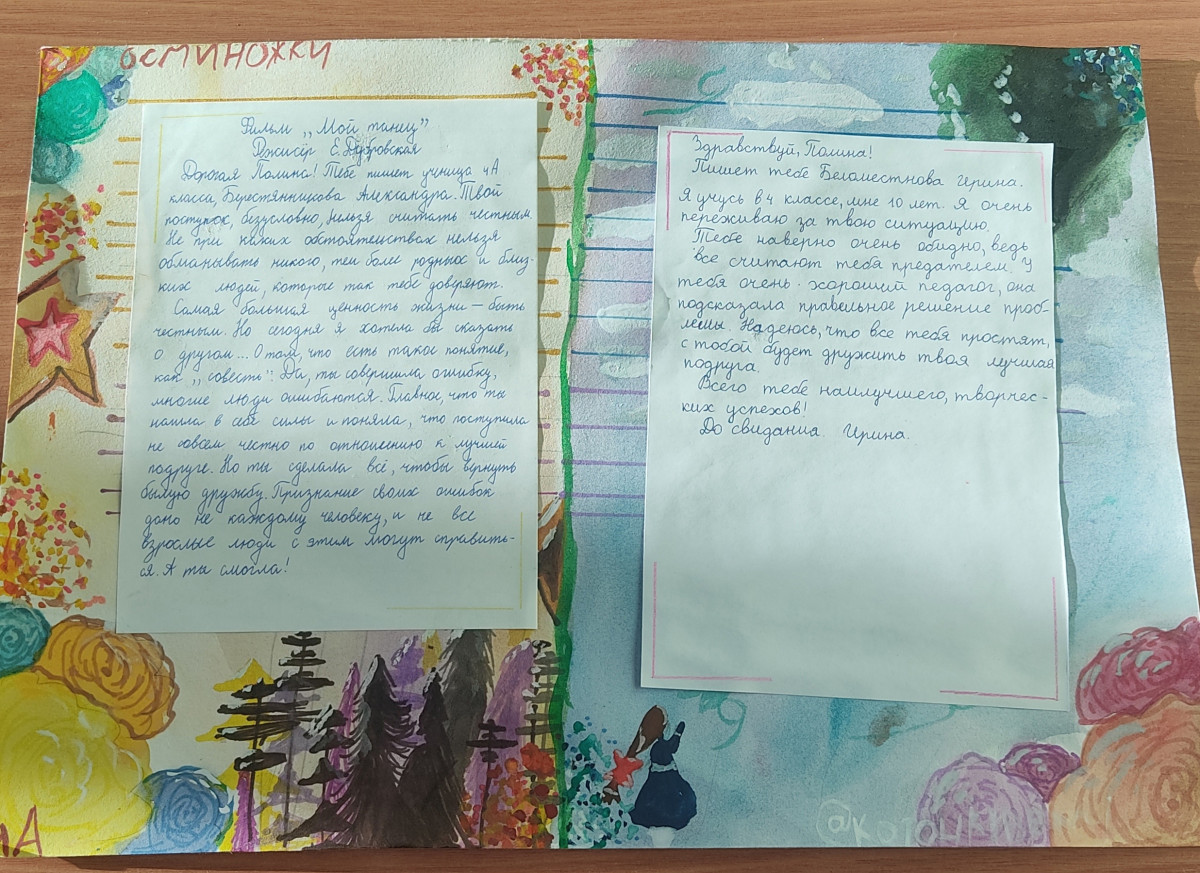 осминожки
Фильм „Мой танец"
Режисёр Е. Дубровская
Дорогая Полина! Тебе пишет ученица 4А
класса, Берестянникова Александра. Твой
поступок, безусловно, нельзя считать честным.
Не при каких обстоятельствах нельзя
обманывать никого, тем более родных и близ-
ких людей, которые так тебе доверяют.
Самая большая ценность жизни — быть
честным. Но сегодня я хотела бы сказать
о другом... О том, что есть такое понятие,
как „совесть". Да, ты совершила ошибку,
многие люди ошибаются. Главное, что ты
нашла в себе силы и поняла, что поступила
не совсем честно по отношению к лучшей
подруге. Но ты сделала всё, чтобы вернуть
былую дружбу. Признание своих ошибок
дано не каждому человеку, и не все
взрослые люди с этим могут справить-
ся. А ты смогла!
Здравствуй, Полина!
Пишет тебе Беломестнова Ирина.
Я учусь в 4 классе, мне 10 лет. Я очень
переживаю за твою ситуацию.
Тебе наверно очень обидно, ведь
все считают тебя предателем. У
тебя очень хороший педагог, она
подсказала правельное решение проб-
лемы. Надеюсь, что все тебя простят,
с тобой будет дружить твоя лучшая
подруга.
Всего тебе наилучшего, творчес-
ких успехов!
До свидания Ирина.